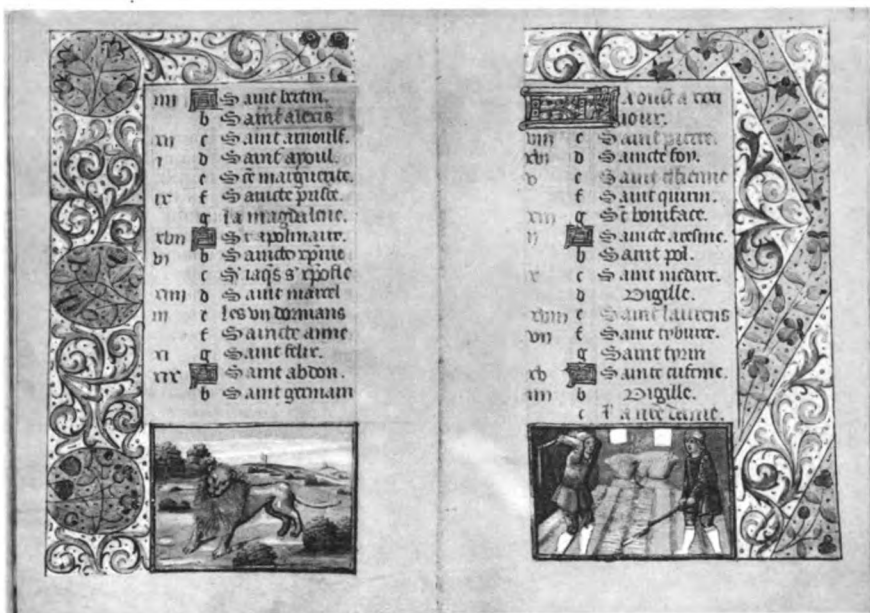 iiii A Saint bertin.
b Saint alexis
xii c Saint arnoulf.
i d Saint apoul.
e Sᵗᵉ marguerite.
ix f Saincte praxe.
g La magdalene.
xvii A Sᵗ apolinaire.
vi b Saincte xp̄ine
c Sᵗ iaqs sᵗ xp̄ofle
xiiii d Saint marcel
iii e Les vii dormans
f Saincte anne
xi g Saint felix.
xix A Saint abdon.
b Saint germain
Aoust a xxxi
iour.
viii c Saint pierre.
xvi d Saincte foy.
v e Saint estienne
f Saint quirin.
xiii g Sᵗ boniface.
ii A Saincte
b Saint pol.
x c Saint medart.
d Vigille.
xviii e Saint laurens
vii f Saint tyburce.
g Saint
xv A Saincte eufeme.
iiii b Vigille.
c